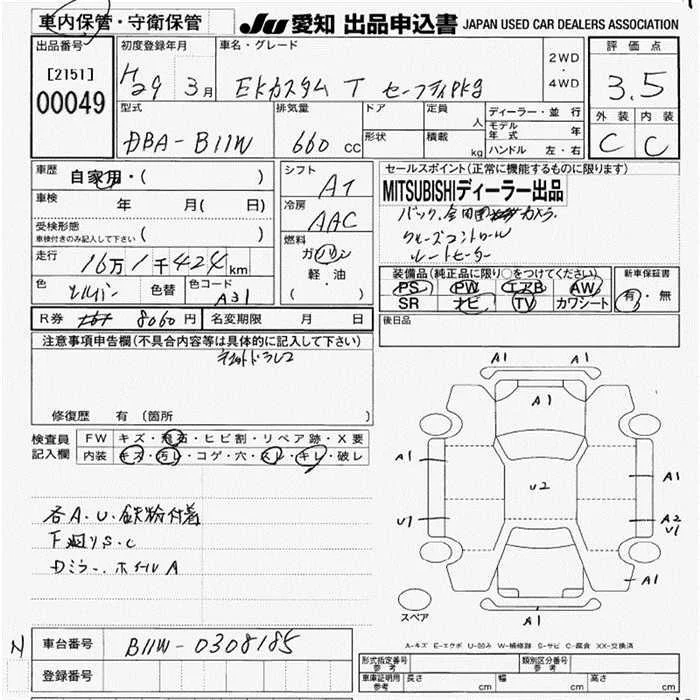 車内保管・守衛保管
JU 愛知 出品申込書 JAPAN USED CAR DEALERS ASSOCIATION
出品番号
[2151]
00049
初度登録年月
H29 3月
車名・グレード
EKカスタム T セーフティPKg
2WD・4WD
評価点
3.5
外装 内装
C C
型式
DBA-B11W
排気量
660 cc
ドア
形状
定員 人
積載 kg
ディーラー・並行
モデル年式 年
ハンドル 左・右
車歴 自家用・( )
車検 年 月( 日)
受検形態
車検付きのみ記入して下さい ( )
走行 16万1千424km
色 シルバー 色替 色コード A31
シフト
AT
冷房
AAC
燃料
ガソリン
軽・油
( )
セールスポイント(正常に機能するものに限ります)
MITSUBISHIディーラー出品
バック、全周囲カメラ
クルーズコントロール
シートヒーター
装備品(純正品に限り○をつけてください)
PS PW エアB AW
SR ナビ TV カワシート
新車保証書
有・無
R券 8060円 名変期限 月 日
後日品
注意事項申告欄(不具合内容等は具体的に記入して下さい)
修復歴 有 (箇所 )
検査員記入欄
FW キズ・飛石・ヒビ割・リペア跡・X要
内装 キズ・汚レ・コゲ・穴・スレ・キレ・破レ
各A.U.鉄粉付着
下廻りS.C
Dミラー、ホイルA
A1 A1
A1
A1
U2
A1
U1
A2
U1
A1
A1
スペア
A-キズ E-エクボ U-凹み W-補修跡 S-サビ C-腐食 XX-交換済
N
車台番号 B11W-0308185
登録番号
形式指定番号 参考
類別区分番号 参考
車庫証明 参考 長さ cm 幅 cm 高さ cm